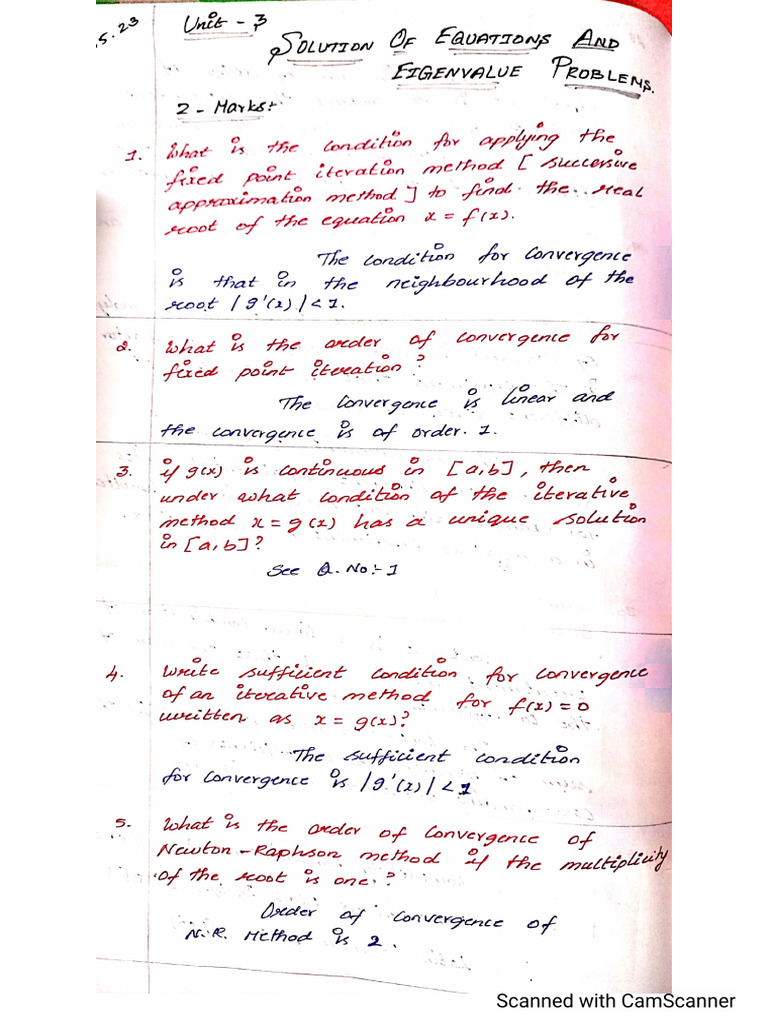 .5.23
Unit - 3
SOLUTION OF EQUATIONS AND
EIGENVALUE PROBLEMS.
2 - Marks:-
1. What is the condition for applying the
fixed point iteration method [ successive
approximation method ] to find the real
root of the equation x = f(x).
The condition for convergence
is that in the neighbourhood of the
root |g'(x)| < 1.
2. What is the order of convergence for
fixed point iteration?
The convergence is linear and
the convergence is of order. 1.
3. if g(x) is continuous in [a,b], then
under what condition of the iterative
method x = g(x) has a unique solution
in [a,b]?
See Q. No:- 1
4. Write sufficient condition for convergence
of an iterative method for f(x) = 0
written as x = g(x)?
The sufficient condition
for convergence is |g'(x)| < 1
5. What is the order of convergence of
Newton - Raphson method if the multiplicity
of the root is one.?
Order of convergence of
N.R. Method is 2.
Scanned with CamScanner